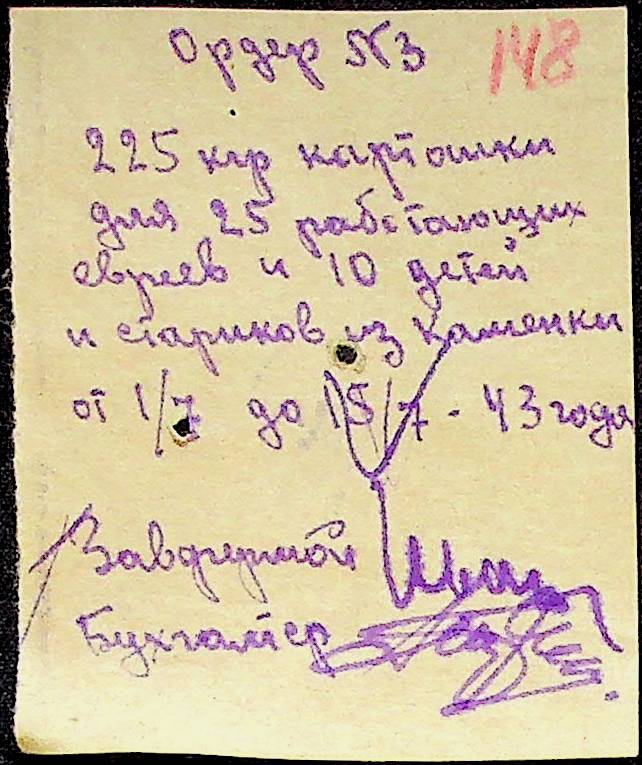 Ордер №3 148
225 кгр картошки
для 25 работающих
евреев и 10 детей
и стариков из Каменки
от 1/7 до 15/7 - 43 года
Завфермой
Бухгалтер